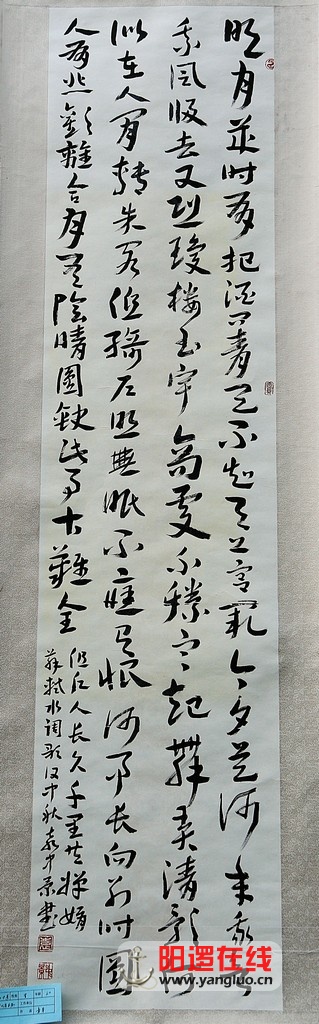 明月幾时有把酒问青天不知天上宫阙今夕是何年我欲
乘风归去又恐瓊楼玉宇高處不勝寒起舞弄清影何
似在人间转朱阁低绮户照無眠不應有恨何事长向别时圆
人有悲歡離合月有陰晴圆缺此事古難全
但願人长久千里共嬋娟
蘇軾水调歌 中秋
阳逻在线
www.yangluo.cn